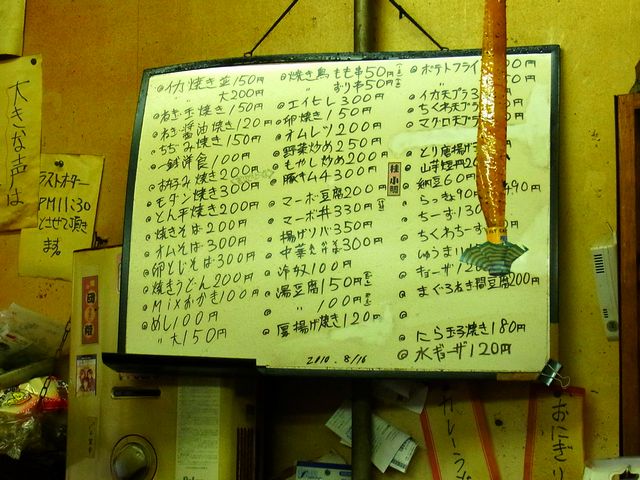 大きな声は
ラストオーダー
PM11:30
とさせて頂き
ます。
◎イカ焼き並150円
〃 大200円
◎ねぎ玉焼き150円
◎ねぎ醤油焼き120円
◎ちぢみ焼き150円
◎一銭洋食100円
◎お好み焼き200円
◎モダン焼き300円
◎とん平焼き200円
◎焼きそば200円
◎オムそば300円
◎卵とじそば300円
◎焼きうどん200円
◎Mixおかき100円
◎めし100円
〃 大150円
◎焼き鳥もも串50円
〃 ずり串50円
◎エイヒレ300円
◎卵焼き150円
◎オムレツ200円
◎野菜炒め250円
◎もやし炒め200円
◎豚キム4300円
◎マーボ豆腐200円
◎マーボ丼330円
◎揚げソバ350円
◎中華そば300円
◎冷奴100円
◎湯豆腐150円
◎〃 100円
◎厚揚げ焼き120円
2010. 8/16
◎ポテトフライ
◎イカ天プラ
◎ちくわ天プラ
◎マグロ天プラ
◎とり唐揚げ
◎山芋短冊
◎納豆60円
◎らっきょ90円
◎チーズ130
◎ちくわチーズ
◎しゅうまい
◎ギョーザ
◎まぐろねぎ間豆腐200円
◎
◎にら玉子焼き180円
◎水ギョーザ120円
おにぎり